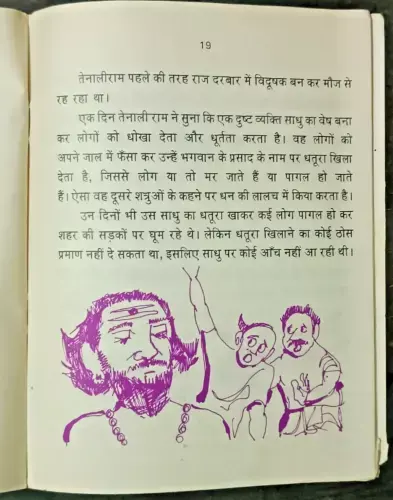 19
तेनालीराम पहले की तरह राज दरबार में विदूषक बन कर मौज से
रह रहा था।
एक दिन तेनालीराम ने सुना कि एक दुष्ट व्यक्ति साधु का वेष बना
कर लोगों को धोखा देता और धूर्तता करता है। वह लोगों को
अपने जाल में फँसा कर उन्हें भगवान के प्रसाद के नाम पर धतूरा खिला
देता है, जिससे लोग या तो मर जाते हैं या पागल हो जाते
हैं। ऐसा वह दूसरे शत्रुओं के कहने पर धन की लालच में किया करता है।
उन दिनों भी उस साधु का धतूरा खाकर कई लोग पागल हो कर
शहर की सड़कों पर घूम रहे थे। लेकिन धतूरा खिलाने का कोई ठोस
प्रमाण नहीं दे सकता था, इसलिए साधु पर कोई आँच नहीं आ रही थी।